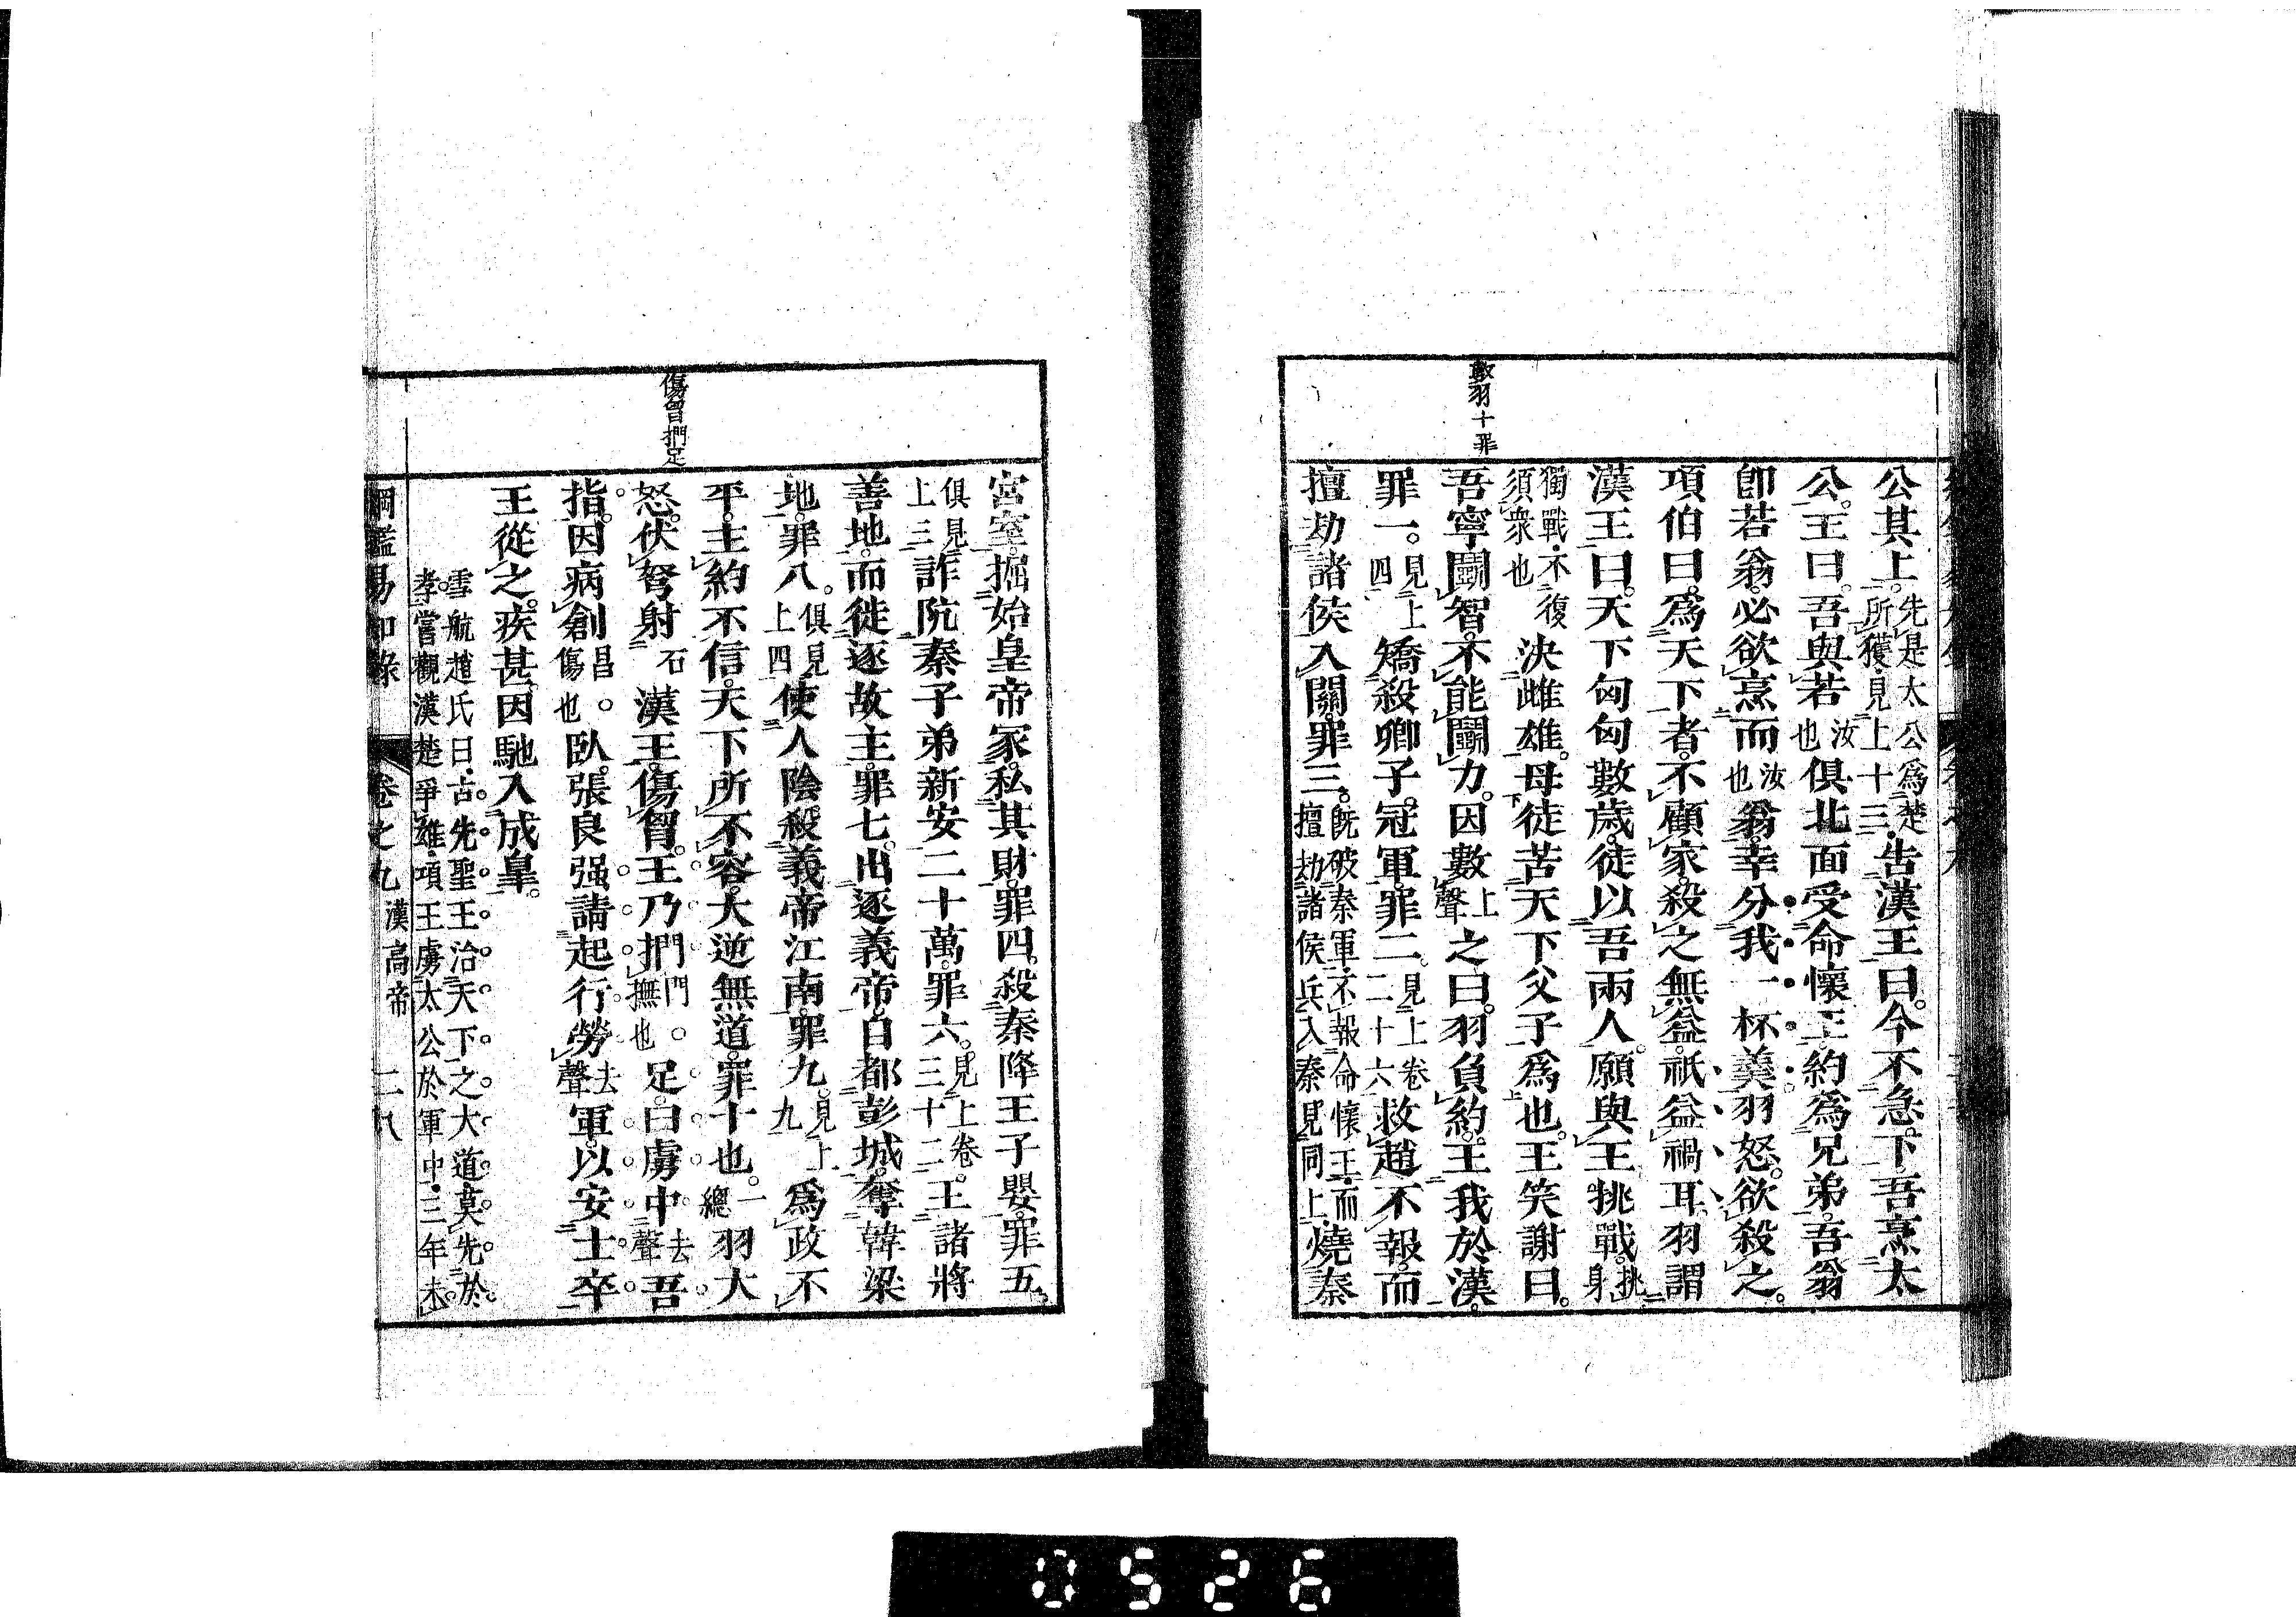 數羽十罪
公其上。先是太公爲楚所獲。見上十三。告漢王曰。今不急下。吾烹太
公。王曰。吾與若汝也俱北面受命懷王。約爲兄弟。吾翁
卽若翁。必欲烹而汝也翁。幸分我一杯羹。羽怒。欲殺之。
項伯曰。爲天下者。不顧家。殺之無益。祇益禍耳。羽謂
漢王曰。天下匈匈數歲。徒以吾兩人。願與王挑戰。挑身
獨戰。不復須衆也決雌雄。毋徒苦天下父子爲也。王笑謝曰。
吾寧鬬智。不能鬬力。因數上聲之曰。羽負約。王我於漢。
罪一。見上四矯殺卿子冠軍。罪二。見上卷二十六救趙不報。而
擅劫諸侯入關。罪三。旣破秦軍。不報命懷王。而擅劫諸侯兵入秦。見同上。燒秦
傷胷捫足
宮室。掘始皇帝冢。私其財。罪四。殺秦降王子嬰。罪五。
俱見上三詐阬秦子弟新安二十萬。罪六。見上卷三十二。王諸將
善地。而徙逐故主。罪七。出逐義帝。自都彭城。奪韓梁
地。罪八。俱見上四使人陰殺義帝江南。罪九。見上九爲政不
平。主約不信。天下所不容。大逆無道。罪十也。一總羽大
怒。伏弩射石漢王。傷胷。王乃捫門。撫也足。曰。虜中去聲吾
指。因病創昌。傷也臥。張良强請起行勞去聲軍。以安士卒。
王從之。疾甚。因馳入成皐。
雪航趙氏曰。古先聖王治天下之大道。莫先於
孝。嘗觀漢楚爭雄。項王虜太公於軍中。三年未
綱鑑易知錄 卷之九 漢高帝 二八